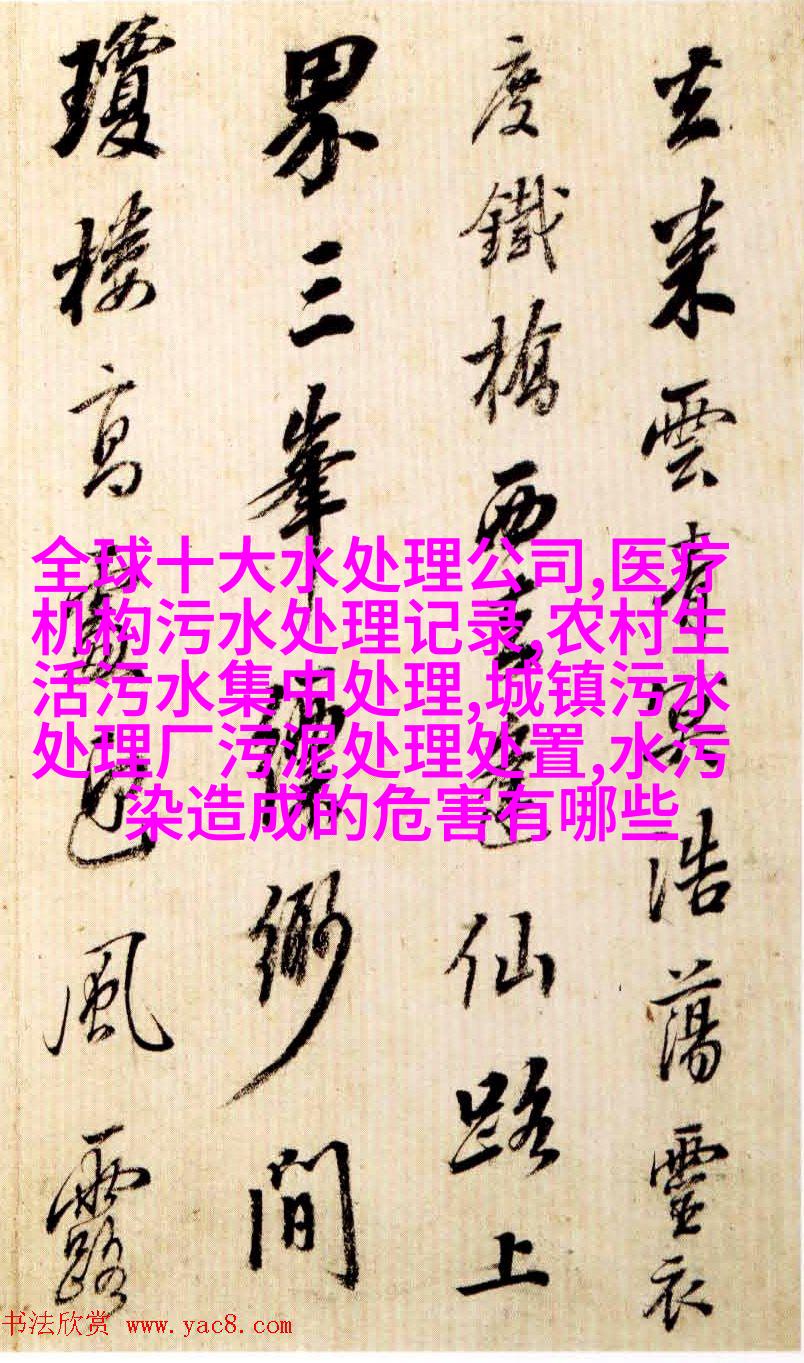 去来雲杳冥浩蕩靈衣
度鐵橋西去遠仙路上
界三峯縹緲間
瓊樓高處風露
全球十大水处理公司,医疗
机构污水处理记录,农村生
活污水集中处理,城镇污水
处理厂污泥处理处置,水污
染造成的危害有哪些
书法欣赏 www.yac8.com